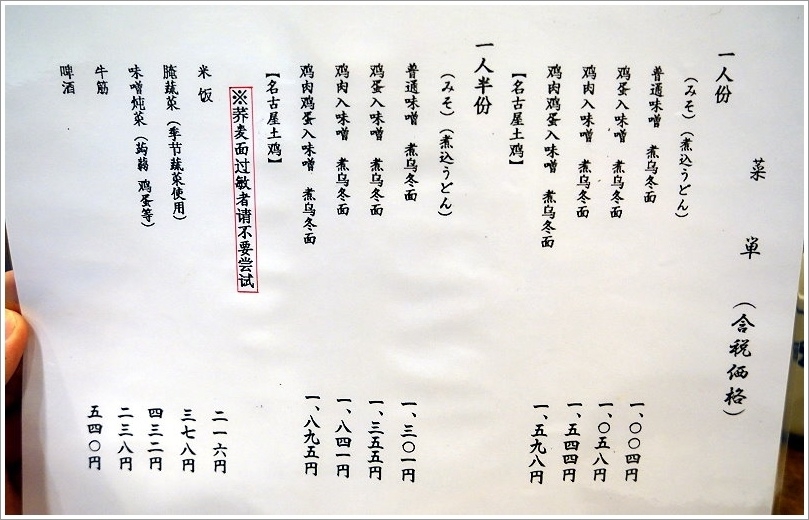 菜 単 (含税価格)
一人份
(みそ)(煮込うどん)
普通味噌 煮乌冬面 一、〇〇四円
鸡蛋入味噌 煮乌冬面 一、〇五八円
鸡肉入味噌 煮乌冬面 一、五四四円
鸡肉鸡蛋入味噌 煮乌冬面 一、五九八円
【名古屋土鸡】
一人半份
(みそ)(煮込うどん)
普通味噌 煮乌冬面 一、三〇一円
鸡蛋入味噌 煮乌冬面 一、三五五円
鸡肉入味噌 煮乌冬面 一、八四一円
鸡肉鸡蛋入味噌 煮乌冬面 一、八九五円
【名古屋土鸡】
※荞麦面过敏者请不要尝试
米饭 二一六円
腌蔬菜(季节蔬菜使用) 三七八円
味噌炖菜(蒟蒻 鸡蛋等) 四三二円
牛筋 二三八円
啤酒 五四〇円